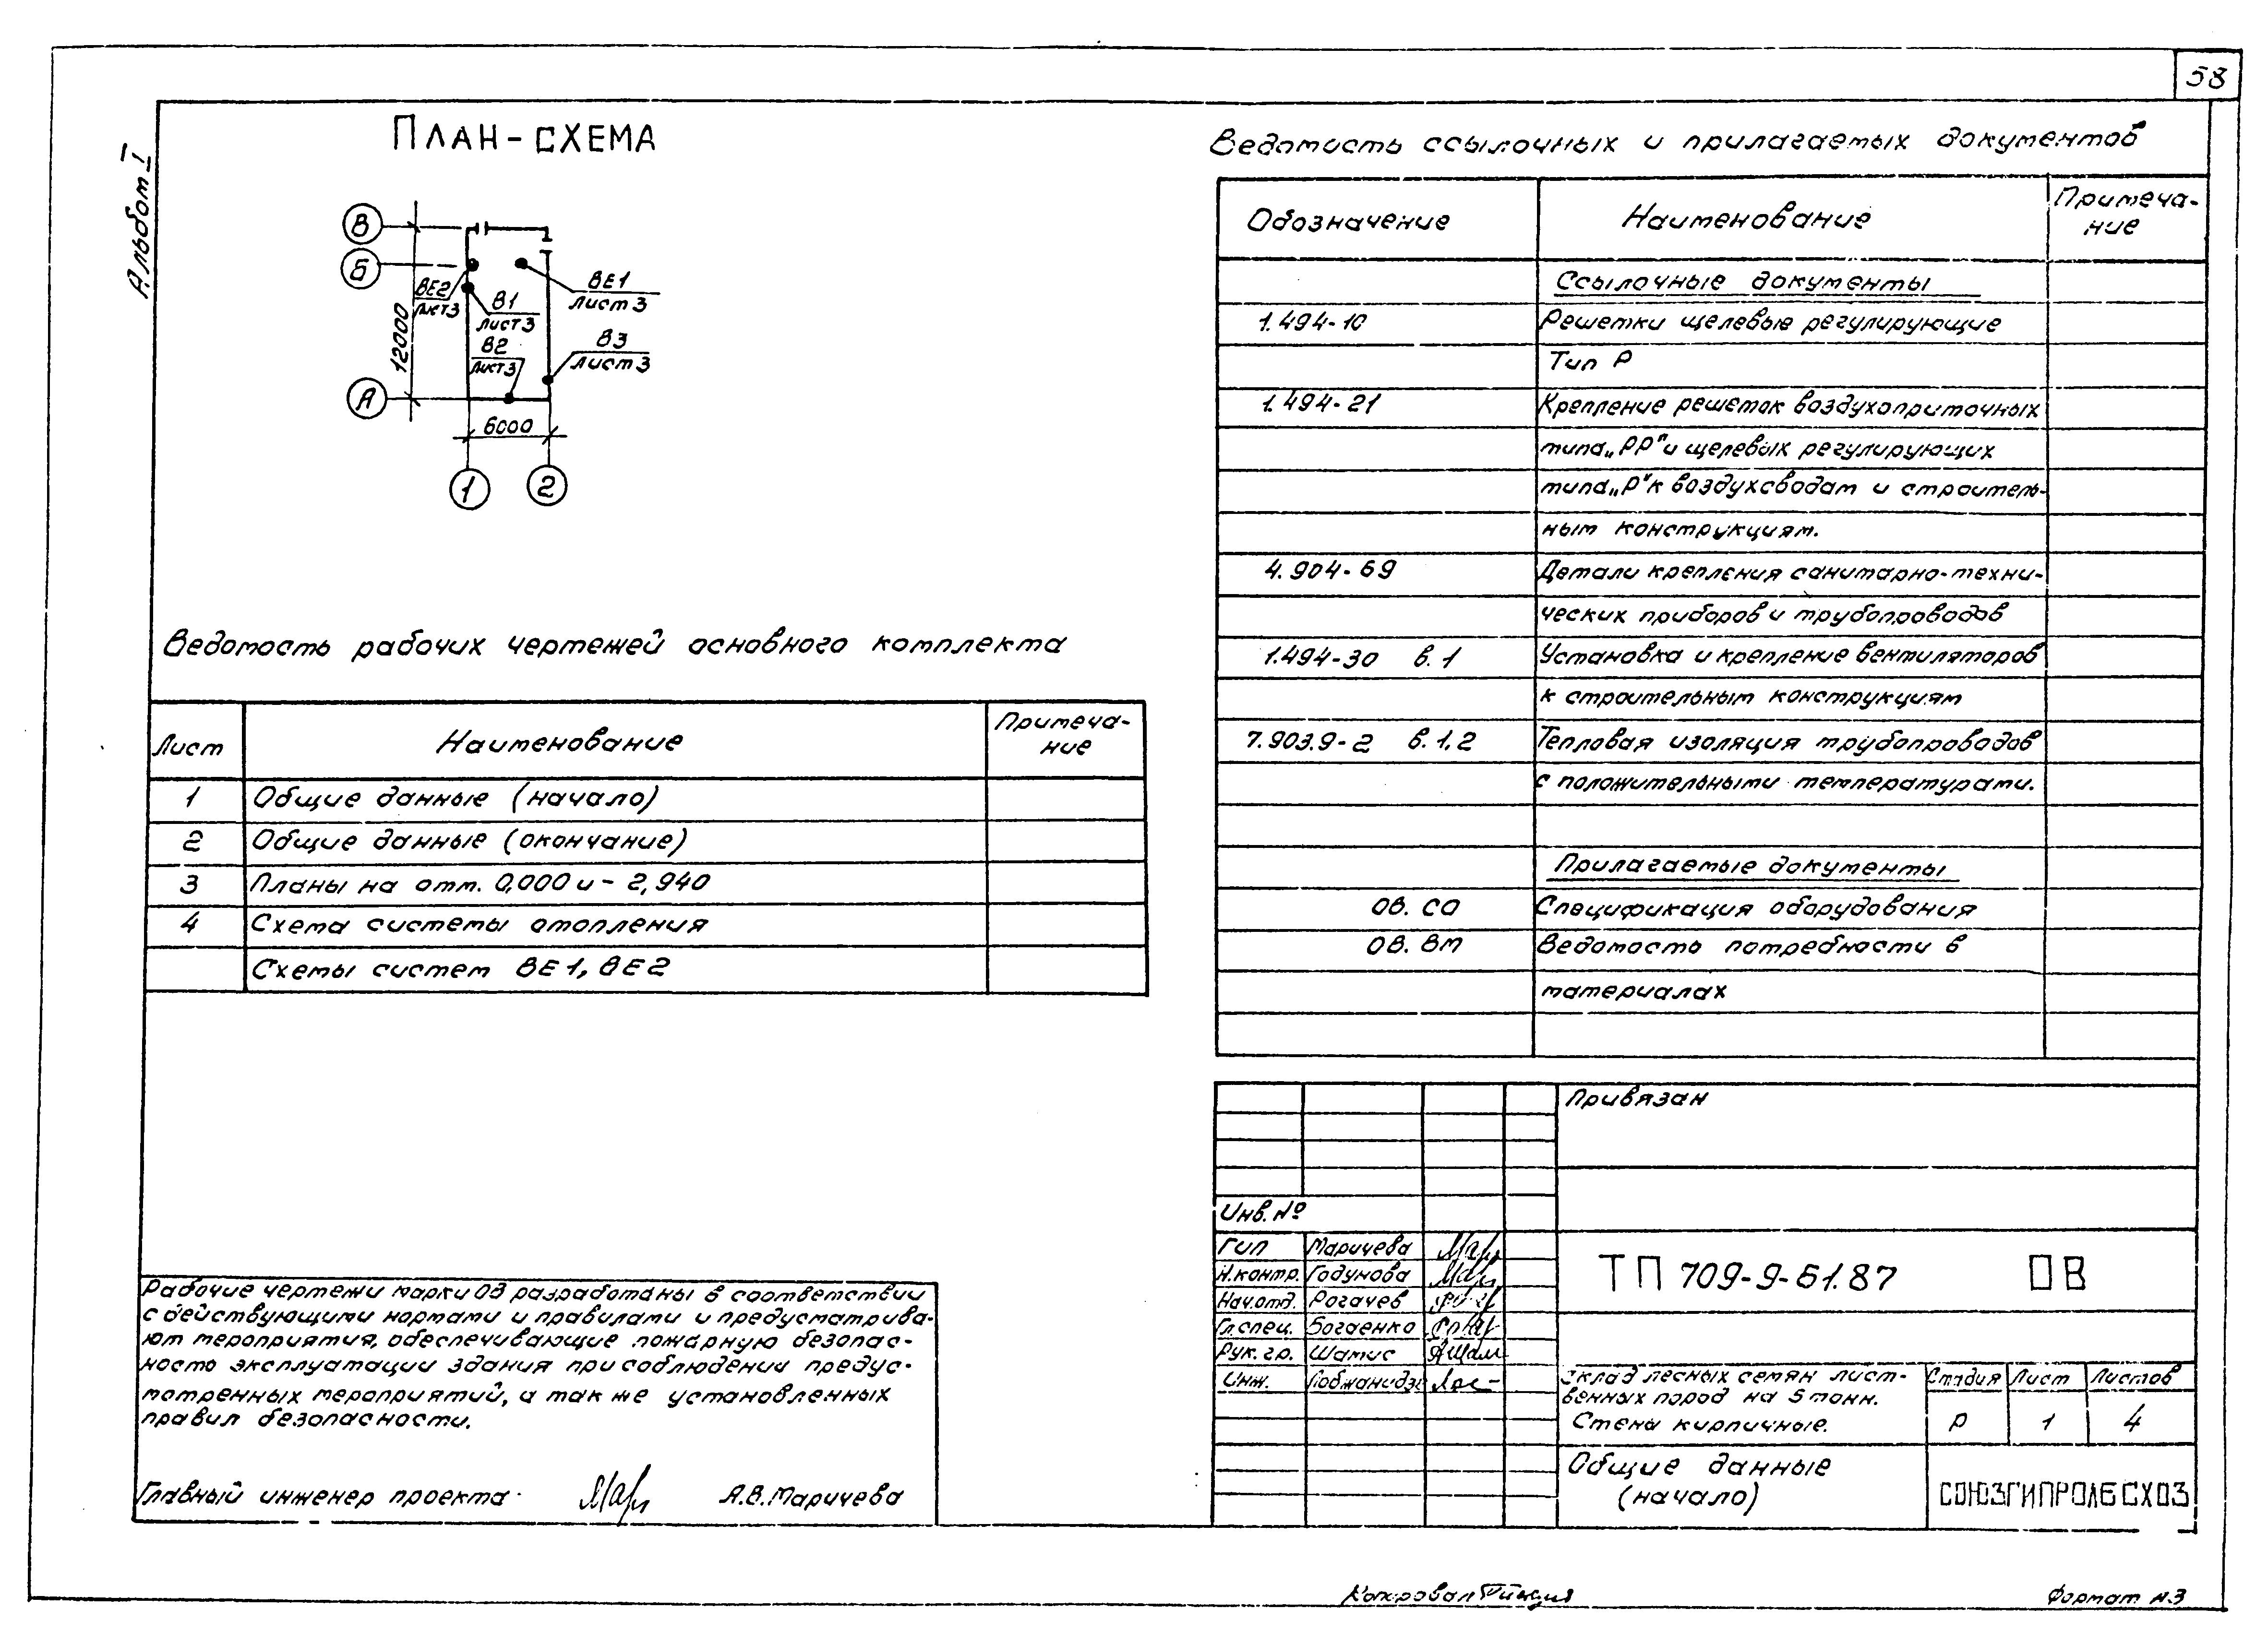 58
Альбом I
План-схема
В
Б
А
12000
6000
1
2
ВЕ2
Лист 3
В1
Лист 3
ВЕ1
Лист 3
В2
Лист 3
В3
Лист 3
Ведомость рабочих чертежей основного комплекта
Лист Наименование Примеча-
ние
1 Общие данные (начало)
2 Общие данные (окончание)
3 Планы на отм. 0,000 и -2,940
4 Схема системы отопления
Схемы систем ВЕ1, ВЕ2
Рабочие чертежи марки ОВ разработаны в соответствии
с действующими нормами и правилами и предусматрива-
ют мероприятия, обеспечивающие пожарную безопас-
ность эксплуатации здания при соблюдении предус-
мотренных мероприятий, а так же установленных
правил безопасности.
Главный инженер проекта А.В. Маричева
Ведомость ссылочных и прилагаемых документов
Обозначение Наименование Примеча-
ние
Ссылочные документы
1.494-10 Решетки щелевые регулирующие
Тип Р
1.494-21 Крепление решеток воздухоприточных
типа „РР" и щелевых регулирующих
типа „Р" к воздуховодам и строитель-
ным конструкциям.
4.904-69 Детали крепления санитарно-техни-
ческих приборов и трубопроводов
1.494-30 в.1 Установка и крепление вентиляторов
к строительным конструкциям
7.903.9-2 в.1,2 Тепловая изоляция трубопроводов
с положительными температурами.
Прилагаемые документы
ОВ. СО Спецификация оборудования
ОВ. ВМ Ведомость потребности в
материалах
Привязан
Инв. №
Гип Маричева
Н.контр. Годунова
Нач.отд. Рогачев
Гл.спец. Богаенко
Рук.гр. Шамис
Инж. Лобжанидзе
ТП 709-9-61.87 ОВ
Склад лесных семян лист-
венных пород на 5 тонн.
Стены кирпичные.
Стадия Лист Листов
Р 1 4
Общие данные
(начало)
СОЮЗГИПРОЛЕСХОЗ
Копировал
Формат А3